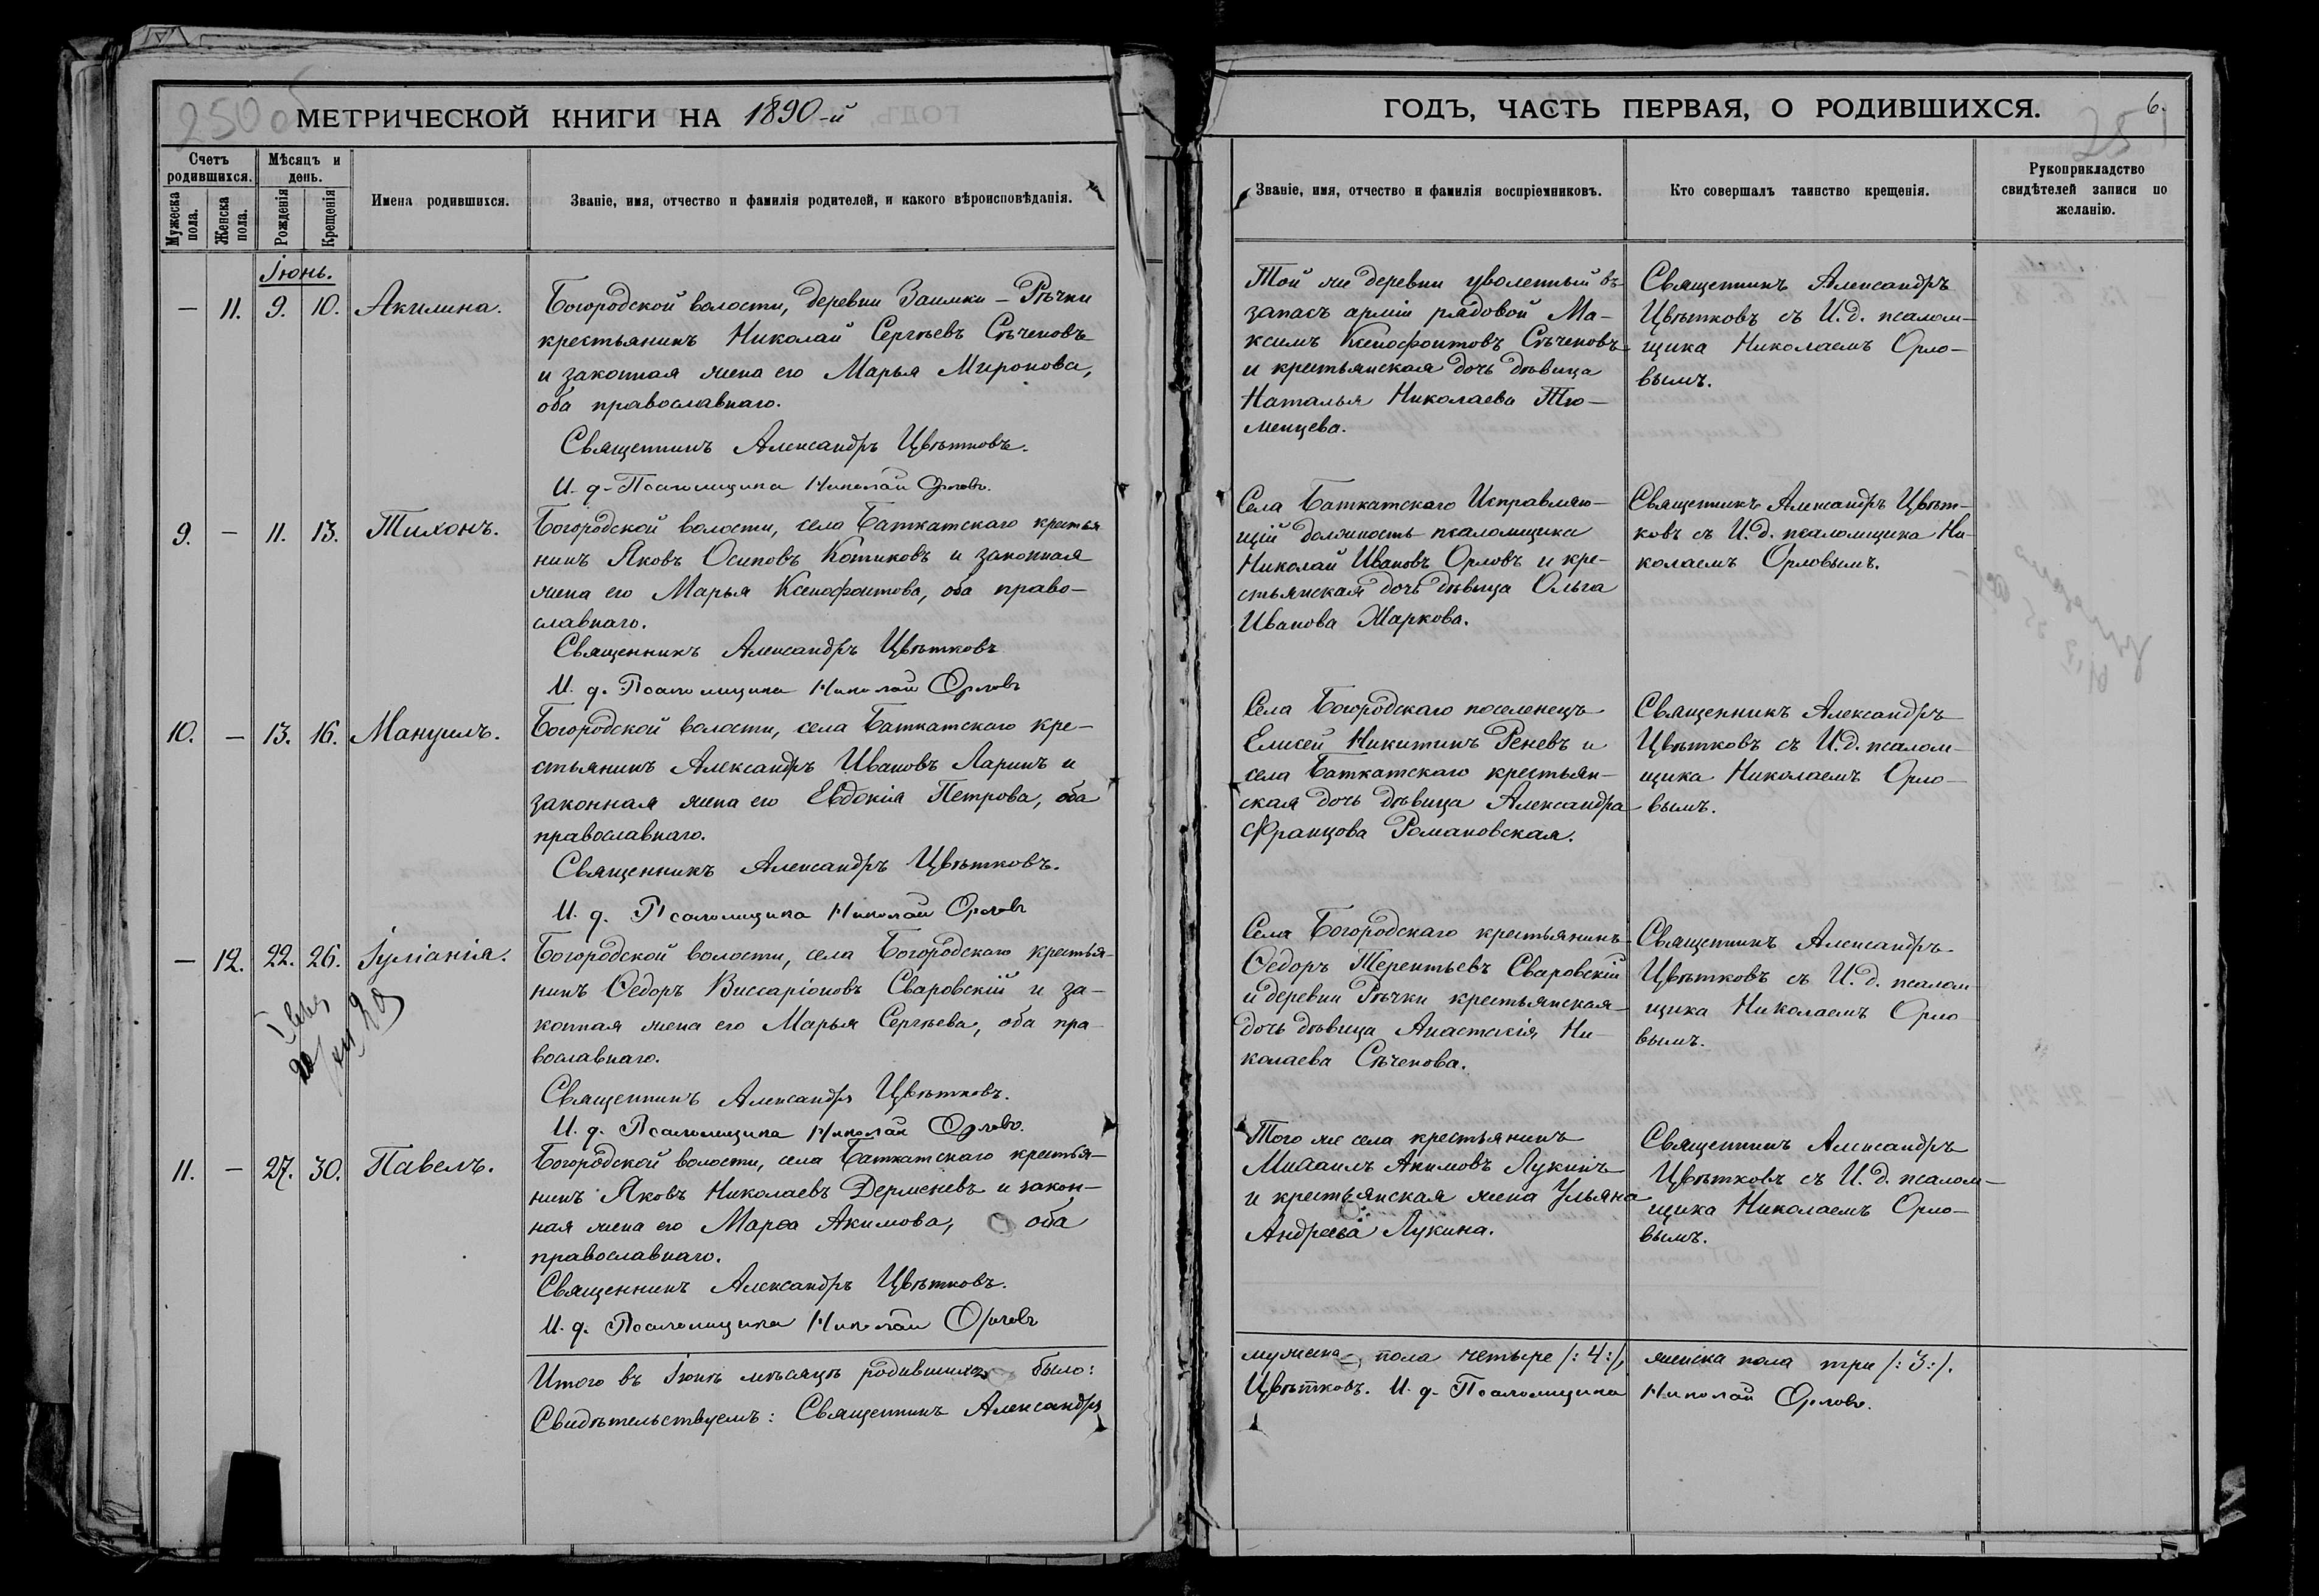 250 об
МЕТРИЧЕСКОЙ КНИГИ НА 1890-й
Счетъ родившихся.
Мѣсяцъ и день.
Мужеска пола.
Женска пола.
Рожденія
Крещенія
Имена родившихся.
Званіе, имя, отчество и фамилія родителей, и какого вѣроисповѣданія.
Іюнь.
— 11. 9. 10. Акилина.
Богородской волости, деревни Заимки - Рѣчки
крестьянинъ Николай Сергѣевъ Сѣченовъ
и законная жена его Марья Миронова,
оба православнаго.
Священникъ Александръ Цвѣтковъ.
И. д. Псаломщика Николай Орловъ.
9. — 11. 13. Тихонъ.
Богородской волости, села Баткатскаго крестья
нинъ Яковъ Осиповъ Котиковъ и законная
жена его Марья Ксенофонтова, оба право-
славнаго.
Священникъ Александръ Цвѣтковъ
И. д. Псаломщика Николай Орловъ
10. — 13. 16. Мануилъ.
Богородской волости, села Баткатскаго кре-
стьянинъ Александръ Ивановъ Ларинъ и
законная жена его Евдокія Петрова, оба
православнаго.
Священникъ Александръ Цвѣтковъ.
И. д. Псаломщика Николай Орловъ
— 12. 22. 26. Іуліанія.
Богородской волости, села Богородскаго крестья-
нинъ Ѳедоръ Виссаріоновъ Сваровскій и за-
конная жена его Марья Сергѣева, оба пра-
вославнаго.
Священникъ Александръ Цвѣтковъ.
И. д. Псаломщика Николай Орловъ.
11. — 27. 30. Павелъ.
Богородской волости, села Баткатскаго крестья-
нинъ Яковъ Николаевъ Дерменевъ и закон-
ная жена его Марѳа Акимова, оба
православнаго.
Священникъ Александръ Цвѣтковъ.
И. д. Псаломщика Николай Орловъ
Итого въ Іюнѣ мѣсяцѣ родившихся было:
Свидѣтельствуемъ: Священникъ Александръ
ГОДЪ, ЧАСТЬ ПЕРВАЯ, О РОДИВШИХСЯ.
6.
251
Званіе, имя, отчество и фамилія воспріемниковъ.
Кто совершалъ таинство крещенія.
Рукоприкладство
свидѣтелей записи по
желанію.
Той же деревни уволенный въ
запасъ арміи рядовой Ма-
ксимъ Ксенофонтовъ Сѣченовъ
и крестьянская дочь дѣвица
Наталья Николаева Тю-
менцева.
Священникъ Александръ
Цвѣтковъ съ И. д. псалом-
щика Николаемъ Орло-
вымъ.
Села Баткатскаго Исправляю-
щій должность псаломщика
Николай Ивановъ Орловъ и кре-
стьянская дочь дѣвица Ольга
Иванова Маркова.
Священникъ Александръ Цвѣт-
ковъ съ И. д. псаломщика Ни-
колаемъ Орловымъ.
Села Богородскаго поселенецъ
Елисей Никитинъ Реневъ и
села Баткатскаго крестьян-
ская дочь дѣвица Александра
Францова Романовская.
Священникъ Александръ
Цвѣтковъ съ И. д. псалом-
щика Николаемъ Орло-
вымъ.
Села Богородскаго крестьянинъ
Ѳедоръ Терентьевъ Сваровскій
и деревни Рѣчки крестьянская
дочь дѣвица Анастасія Ни-
колаева Сѣченова.
Священникъ Александръ
Цвѣтковъ съ И. д. псалом-
щика Николаемъ Орло
вымъ.
Того же села крестьянинъ
Михаилъ Акимовъ Лукинъ
и крестьянская жена Ульяна
Андреева Лукина.
Священникъ Александръ
Цвѣтковъ съ И. д. псалом-
щика Николаемъ Орло-
вымъ.
мужска пола четыре /:4:/, женска пола три /:3:/.
Цвѣтковъ. И. д. Псаломщика Николай Орловъ.